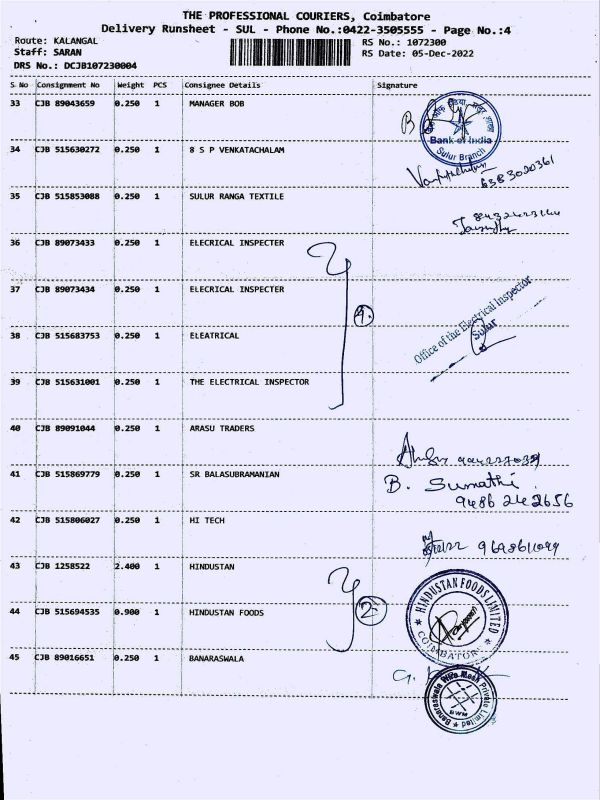 THE PROFESSIONAL COURIERS, Coimbatore
Delivery Runsheet - SUL - Phone No.:0422-3505555 - Page No.:4
Route: KALANGAL
Staff: SARAN
DRS No.: DCJB107230004
RS No.: 1072300
RS Date: 05-Dec-2022
S No Consignment No Weight PCS Consignee Details Signature
33 CJB 89043659 0.250 1 MANAGER BOB
Bank of India
Sulur Branch
34 CJB 515630272 0.250 1 8 S P VENKATACHALAM
6383020361
35 CJB 515853088 0.250 1 SULUR RANGA TEXTILE
36 CJB 89073433 0.250 1 ELECRICAL INSPECTER
37 CJB 89073434 0.250 1 ELECRICAL INSPECTER
4.
Office of the Electrical Inspector
Sulur
38 CJB 515683753 0.250 1 ELEATRICAL
39 CJB 515631001 0.250 1 THE ELECTRICAL INSPECTOR
40 CJB 89091044 0.250 1 ARASU TRADERS
41 CJB 515869779 0.250 1 SR BALASUBRAMANIAN
B. Sumathi
9486242656
42 CJB 515806027 0.250 1 HI TECH
43 CJB 1258522 2.400 1 HINDUSTAN
2
HINDUSTAN FOODS LIMITED
COIMBATORE
44 CJB 515694535 0.900 1 HINDUSTAN FOODS
45 CJB 89016651 0.250 1 BANARASWALA
Banaraswala Wire Mesh Private Limited
BWM